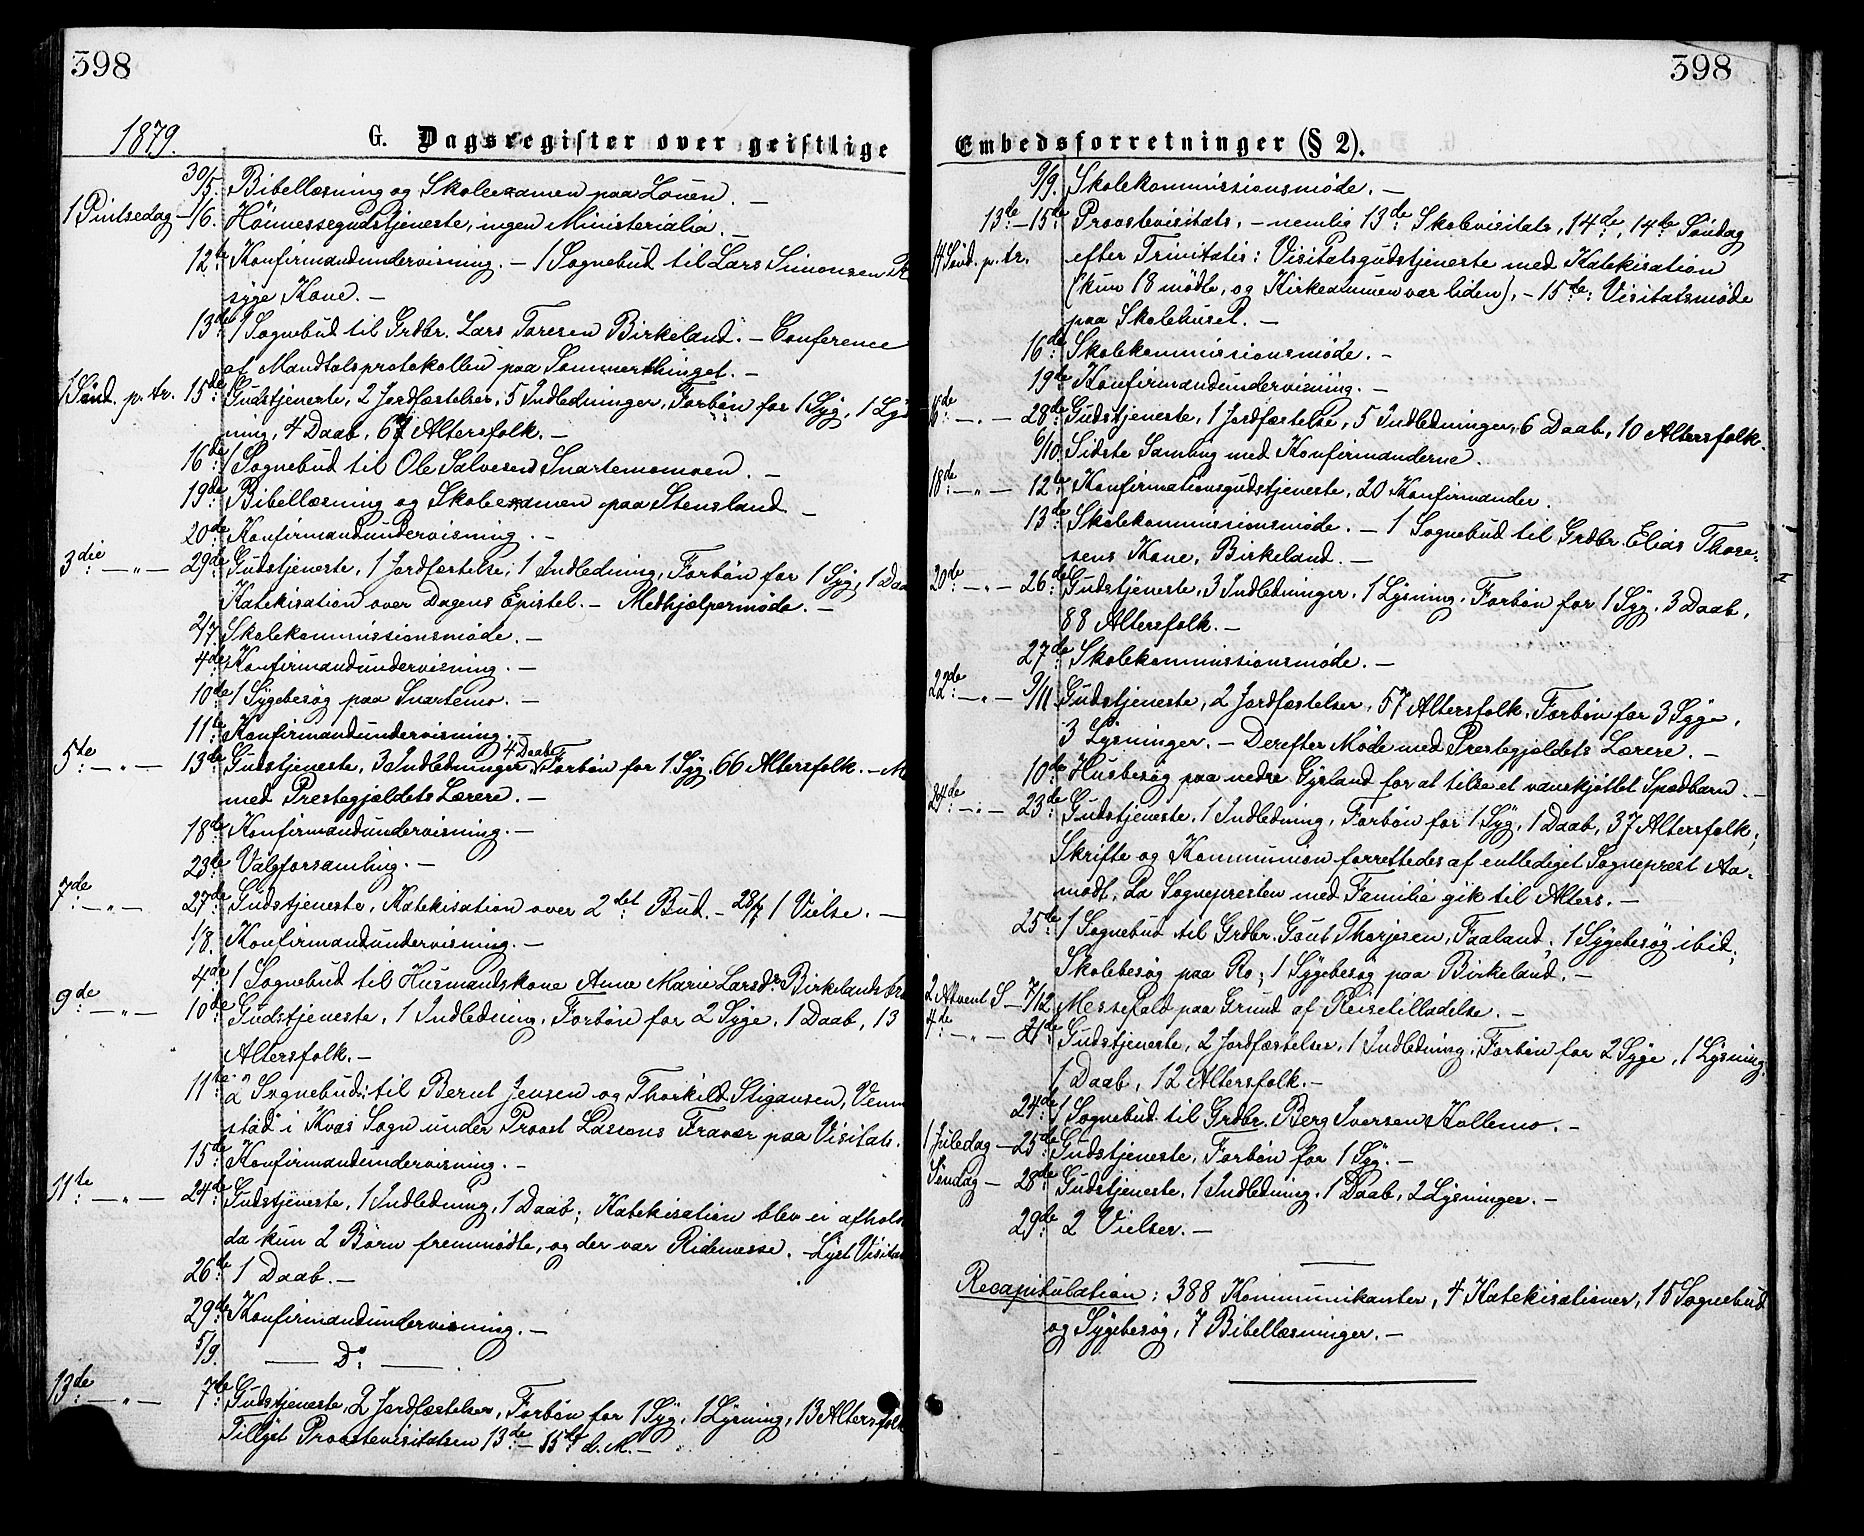 398
1879.
G. Dagsregister over geistlige
30/5. Bibellæsning og Skoleexamen paa Louen. —
1 Pintsedag — 1/6. Höimessegudstjeneste, ingen Ministerialia. —
12te Konfirmandundervisning. — 1 Sognebud til Lars Simonsen
syge Kone. —
13de 1 Sognebud til Grdbr. Lars Toresen Birkeland. — Conference
af Mandtalsprotokollen paa Sommerthinget. —
1 Sönd. p. tr. 15de Gudstjeneste, 2 Jordfæstelser, 5 Indledninger, Forbön for 1 Syg, 1 Lys
ning, 4 Daab, 67 Altersfolk. —
16de 1 Sognebud til Ole Salvesen Snartemomoen. —
19de Bibellæsning og Skoleexamen paa Stensland —
20de Konfirmandundervisning. —
3die — „ — 29de Gudstjeneste, 1 Jordfæstelse, 1 Indledning, Forbön for 1 Syg, 1 Daa
Katekisation over Dagens Epistel. — Medhjælpermöde. —
2/7 Skolekommissionsmöde. —
4de Konfirmandundervisning. —
10de 1 Sygebesög paa Snartemo. —
11te Konfirmandundervisning. —
5te — „ — 13de Gudstjeneste, 3 Indledninger, 4 Daab, Forbön for 1 Syg. 66 Altersfolk. — M
med Prestegjældets Lærere. —
18de Konfirmandundervisning. —
23de Valgforsamling. —
7de — „ — 27de Gudstjeneste, Katekisation over 2det Bud. — 28/7 1 Vielse. —
1/8. Konfirmandundervisning. —
4de 1 Sognebud til Husmandskone Anne Marie Larsdr. Birkelands
9de — „ — 10de Gudstjeneste, 1 Indledning, Forbön for 2 Syge, 1 Daab, 13
Altersfolk. —
11te 2 Sognebud: til Bernt Jensen og Thorkild Stigansen, Venne
stad i Kvås Sogn under Provst Lassons Fravær paa Visitats.
15de Konfirmandundervisning. —
11te — „ — 24de Gudstjeneste, 1 Indledning, 1 Daab; Katekisation blev ei afhol
da kun 2 Börn fremmödte, og der var Ridemesse. — Lyst Visita
26de 1 Daab. —
29de Konfirmandundervisning. —
5/9. — Do —
13de — „ — 7de Gudstjeneste, 2 Jordfæstelser, Forbön for 1 Syg, 1 Lysning, 13 Altersfolk
Tillyst Provstevisitatsen 13de — 15de d. M. —
398
Embedsforretninger (§ 2).
9/9. Skolekommissionsmöde. —
13de — 15de Provstevisitats, — nemlig 13de Skolevisitats, 14de, 14de Söndag
14 Sönd. p. tr. efter Trinitatis: Visitatsgudstjeneste med Katekisation
(kun 18 mödte, og Kirkealmuen var liden), — 15de: Visitatsmöde
paa Skolehuset. —
16de Skolekommissionsmöde. —
19de Konfirmandundervisning. —
16de — „ — 28de Gudstjeneste, 1 Jordfæstelse, 5 Indledninger, 6 Daab, 10 Altersfolk.
6/10 Sidste Samling med Konfirmanderne.
18de — „ — 12te Konfirmationsgudstjeneste, 20 Konfirmander.
13de Skolekommissionsmöde. — 1 Sognebud til Grdbr. Elias Thore-
sens Kone, Birkeland. —
20de — „ — 26de Gudstjeneste, 3 Indledninger, 1 Lysning, Forbön for 1 Syg, 3 Daab,
88 Altersfolk. —
27de Skolekommissionsmöde. —
22de — „ — 9/11 Gudstjeneste, 2 Jordfæstelser, 57 Altersfolk, Forbön for 3 Syge,
3 Lysninger. — Derefter Möde med Prestegjældets Lærere. —
10de Husbesög paa nedre Gysland for at tilse et vanskjöttet Spædbarn. —
24de — „ — 23de Gudstjeneste, 1 Indledning, Forbön for 1 Syg, 1 Daab, 37 Altersfolk;
Skrifte og Kommunion forrettedes af entlediget Sogneprest Aa-
modt, da Sognepresten med Familie gik til Alters. —
25de 1 Sognebud til Grdbr. Gout Thorjesen, Faaland, 1 Sygebesög ibid;
Skolebesög paa Ro; 1 Sygebesög paa Birkeland. —
2 Advent S — 7/12. Messefald paa Grund af Reisetilladelse. —
4de — „ — 21de Gudstjeneste, 2 Jordfæstelser, 1 Indledning, Forbön for 2 Syge, 1 Lysning
1 Daab, 12 Altersfolk. —
24de 1 Sognebud til Grdbr. Berg Iversen Kollemo. —
1 Juledag — 25de Gudstjeneste, Forbön for 1 Syg. —
Söndag — 28de Gudstjeneste, 1 Indledning, 1 Daab, 2 Lysninger. —
29de 2 Vielser. —
Recapitulation: 388 Kommunikanter, 4 Katekisationer, 15 Sognebud
og Sygebesög, 7 Bibellæsninger. —